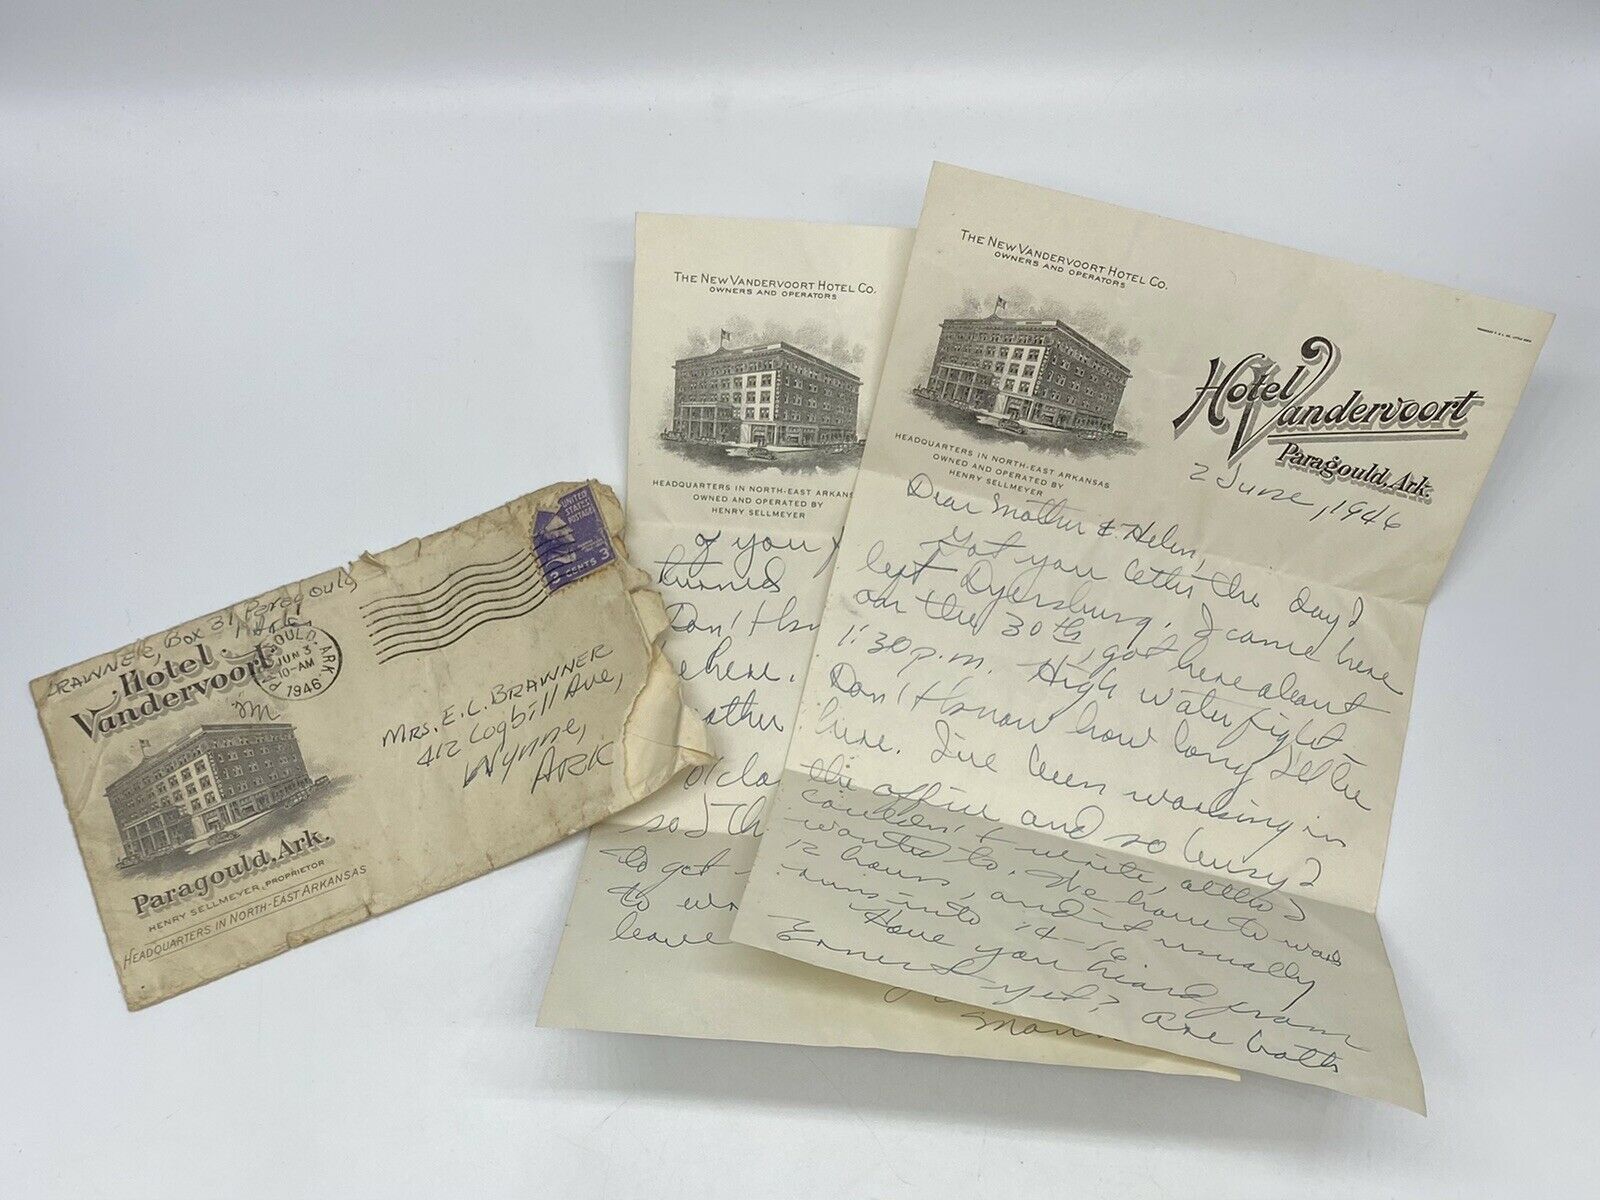 BRAWNER, Box 31 Paragould,
Ark.
Hotel
Vandervoort
PARAGOULD, ARK.
JUN 3
10-AM
1946
UNITED
STATES
POSTAGE
3 CENTS 3
MRS. E. L. BRAWNER
412 Cogbill Ave,
Wynne,
ARK
Paragould, Ark.
HENRY SELLMEYER, PROPRIETOR
HEADQUARTERS IN NORTH-EAST ARKANSAS
THE NEW VANDERVOORT HOTEL CO.
OWNERS AND OPERATORS
HEADQUARTERS IN NORTH-EAST ARKANS
OWNED AND OPERATED BY
HENRY SELLMEYER
of you
turned
Don't
here.
other
so I th
to get
to wr
leave
THE NEW VANDERVOORT HOTEL CO.
OWNERS AND OPERATORS
HEADQUARTERS IN NORTH-EAST ARKANSAS
OWNED AND OPERATED BY
HENRY SELLMEYER
Hotel Vandervoort
Paragould, Ark.
2 June, 1946
Dear Mother & Helen,
Got you letter the day I
left Dyersburg. I came here
on the 30th, got here about
1:30 p.m. High water fight
Don't know how long I'll be
here. I've been working in
the office and so busy I
couldn't write, altho I
wanted to. We have to work
12 hours, and it usually
runs into 14-16
Have you heard from
Ernest yet? Are both